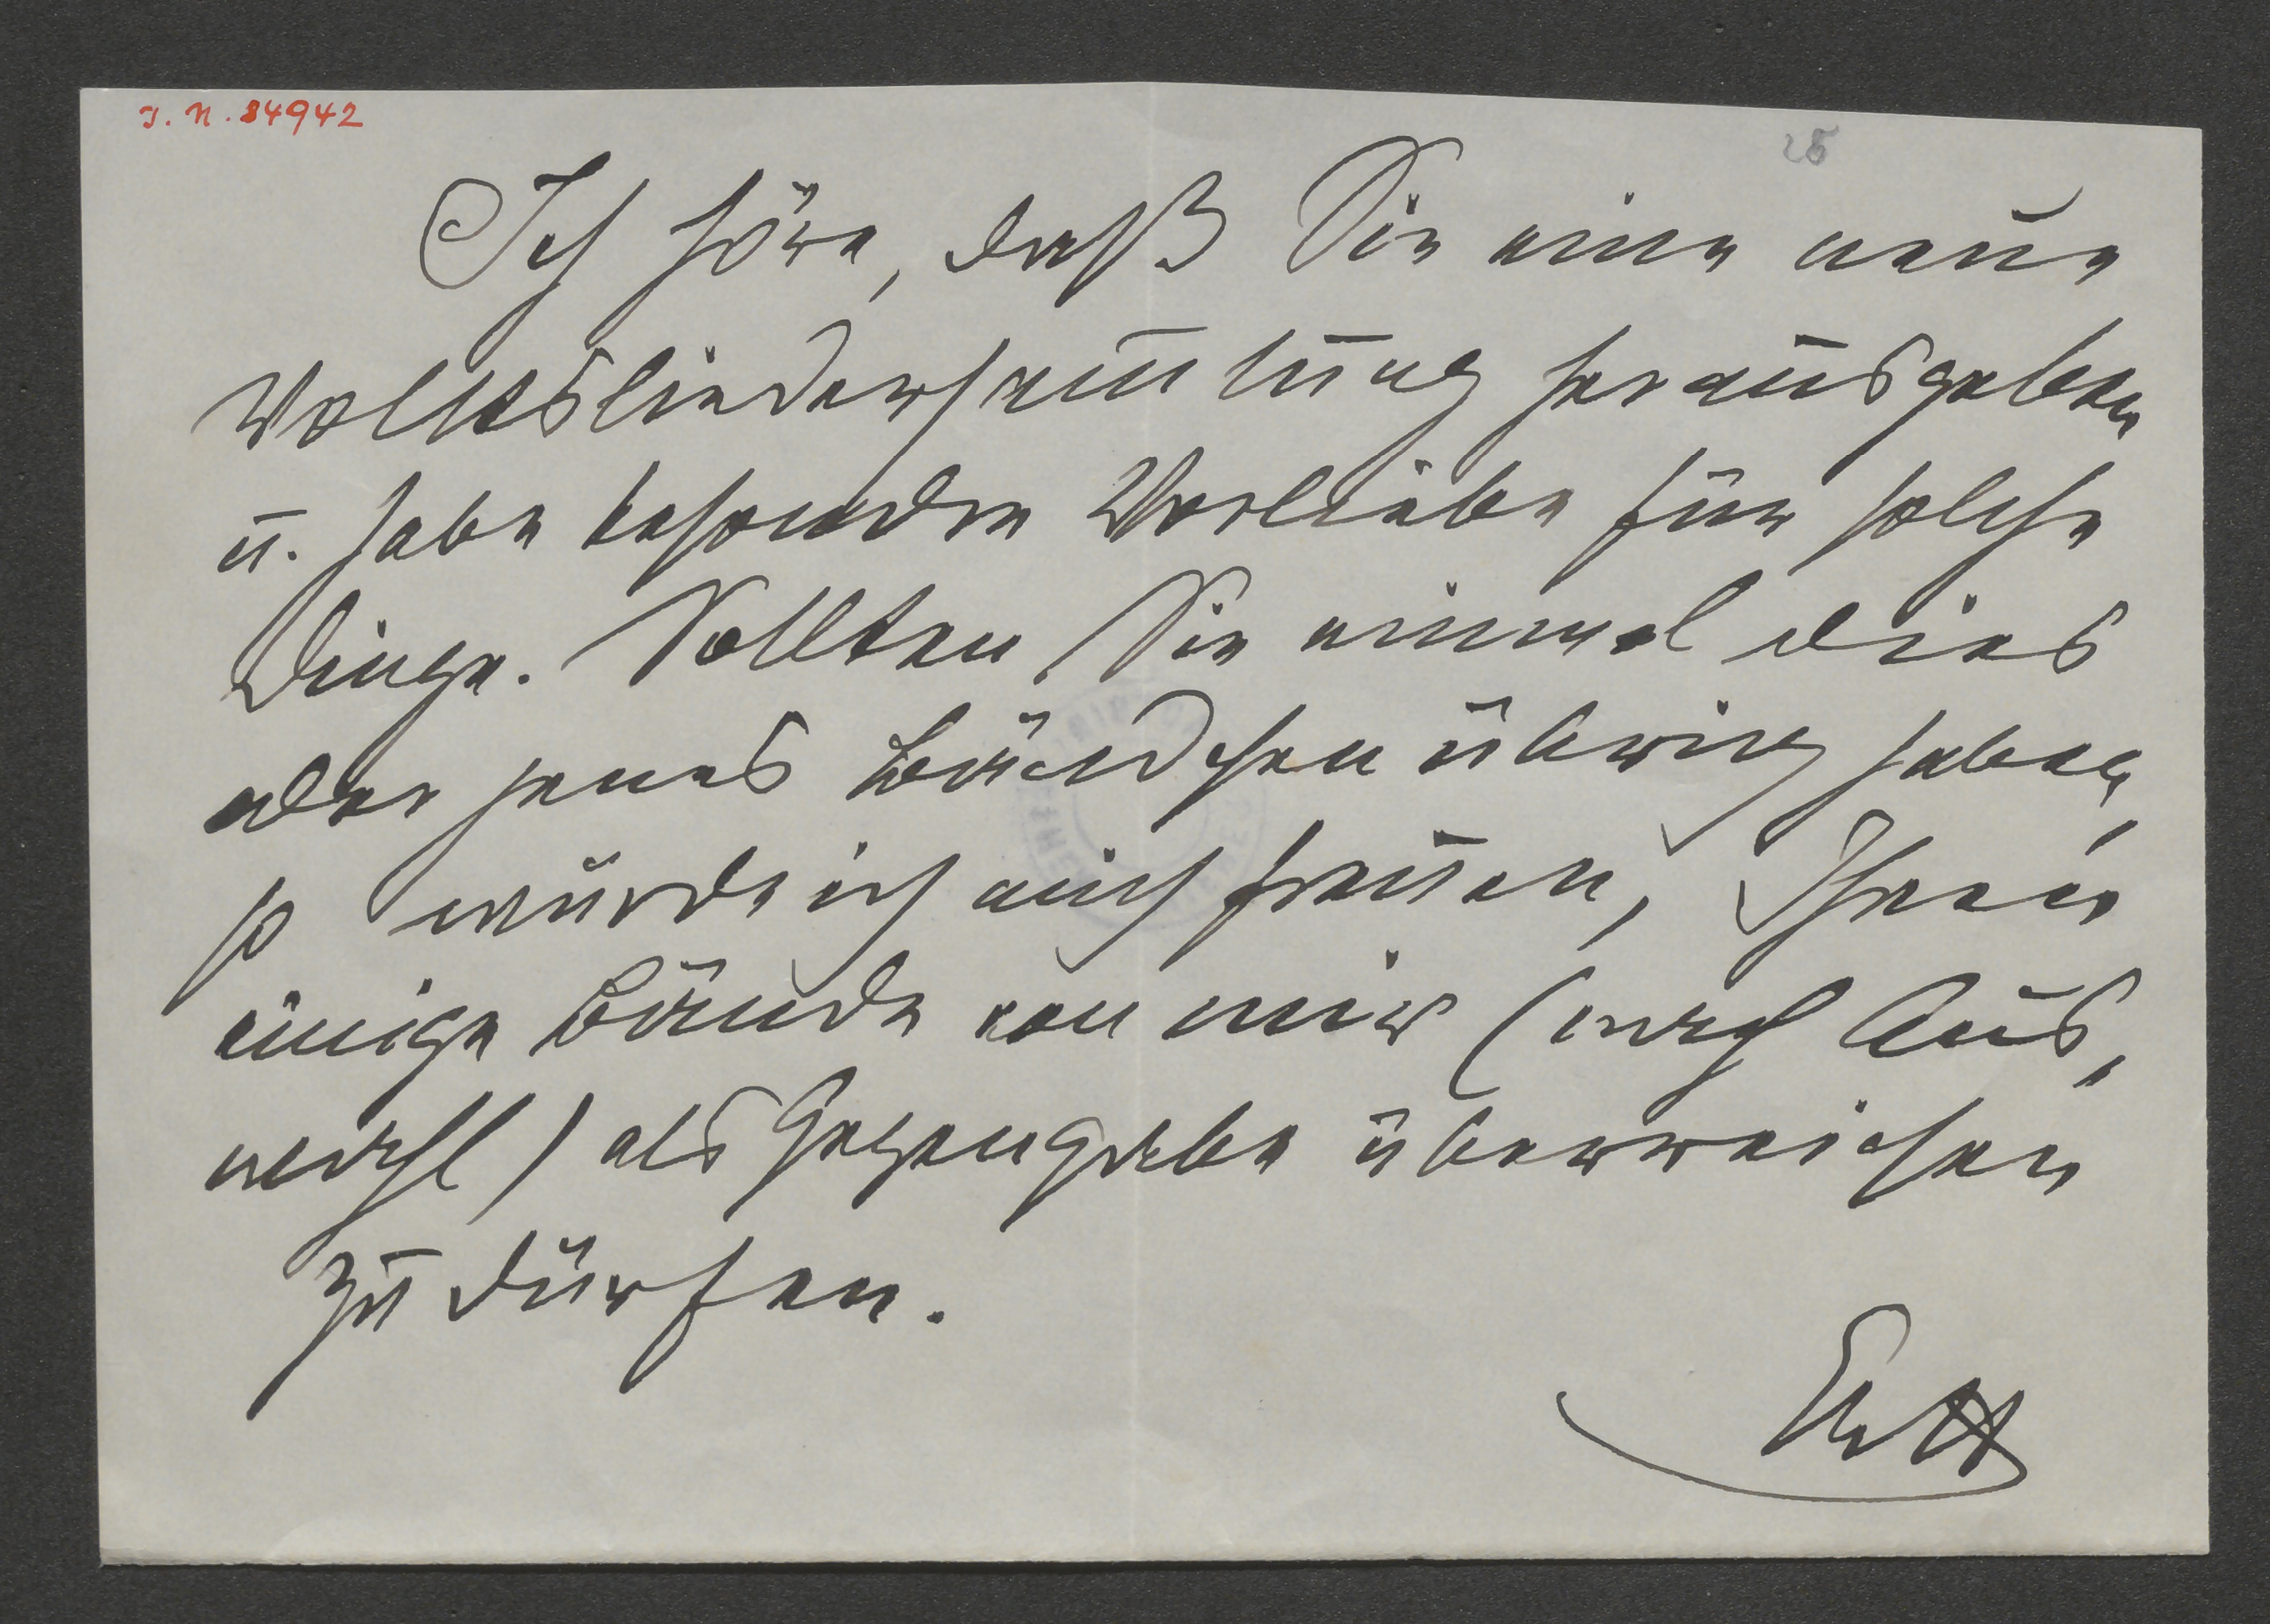 I. N. 84942
28
Ich höre, daß Sie eine neue
Volksliedersammlung herausgeben
u. habe besondre Vorliebe für solche
Dinge. Sollten Sie einmal dies
oder jenes Bändchen übrig haben,
so würde ich mich freuen, Ihnen
einige Bände von mir (nach Aus,
wahl) als Gegengabe überreichen
zu dürfen.